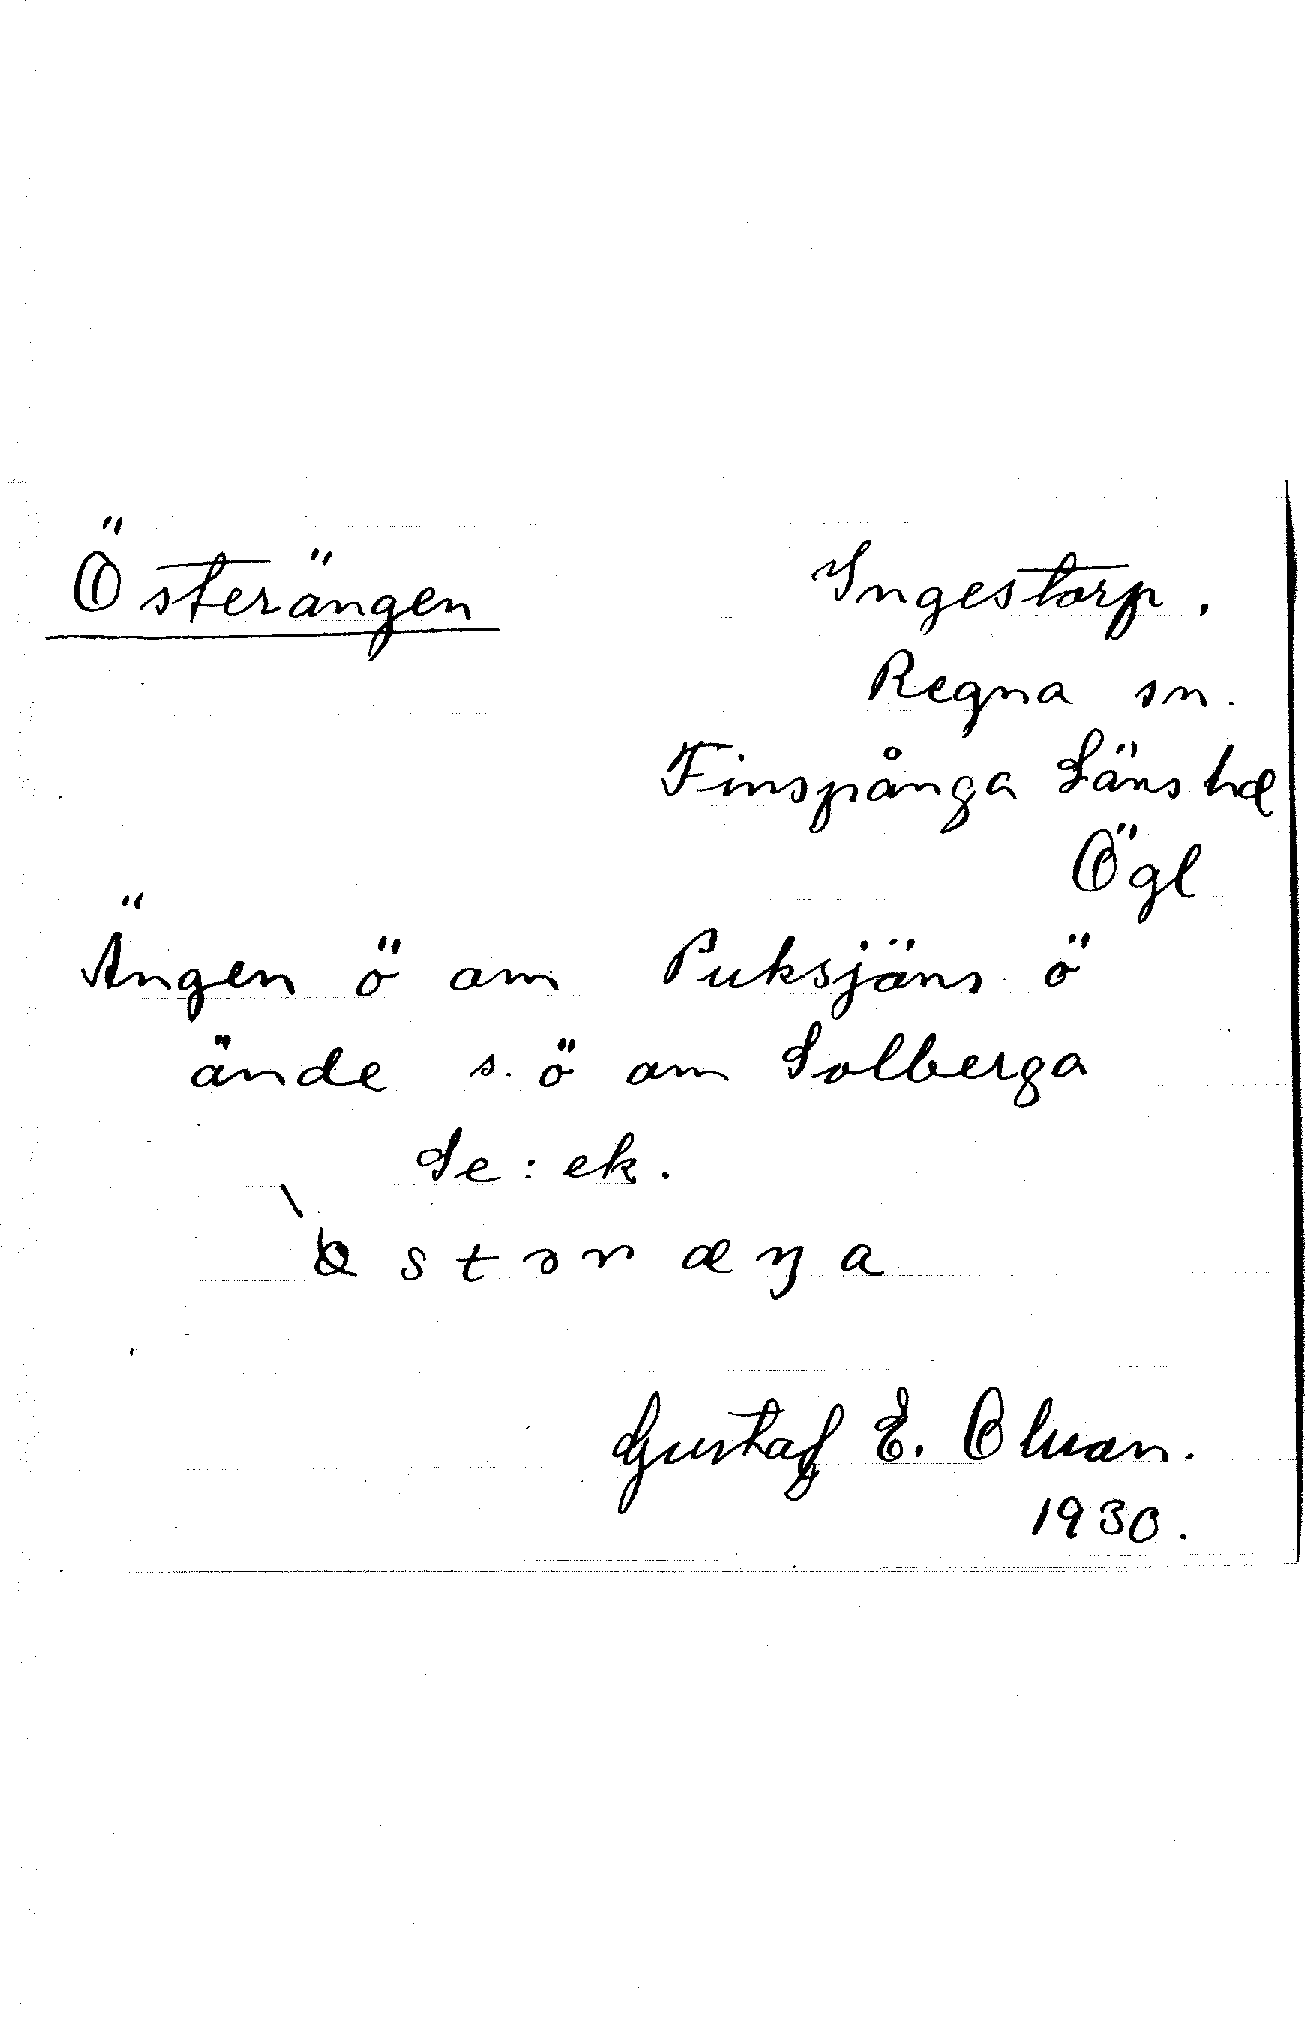 Österängen
Ingestorp.
Regna sn.
Finspånga Läns hd
Ögl
Ängen ö om Puksjöns ö
ände s. ö om Solberga
Se: ek.
st ə r æ ŋ a
Gustaf E. Olsson.
1930.